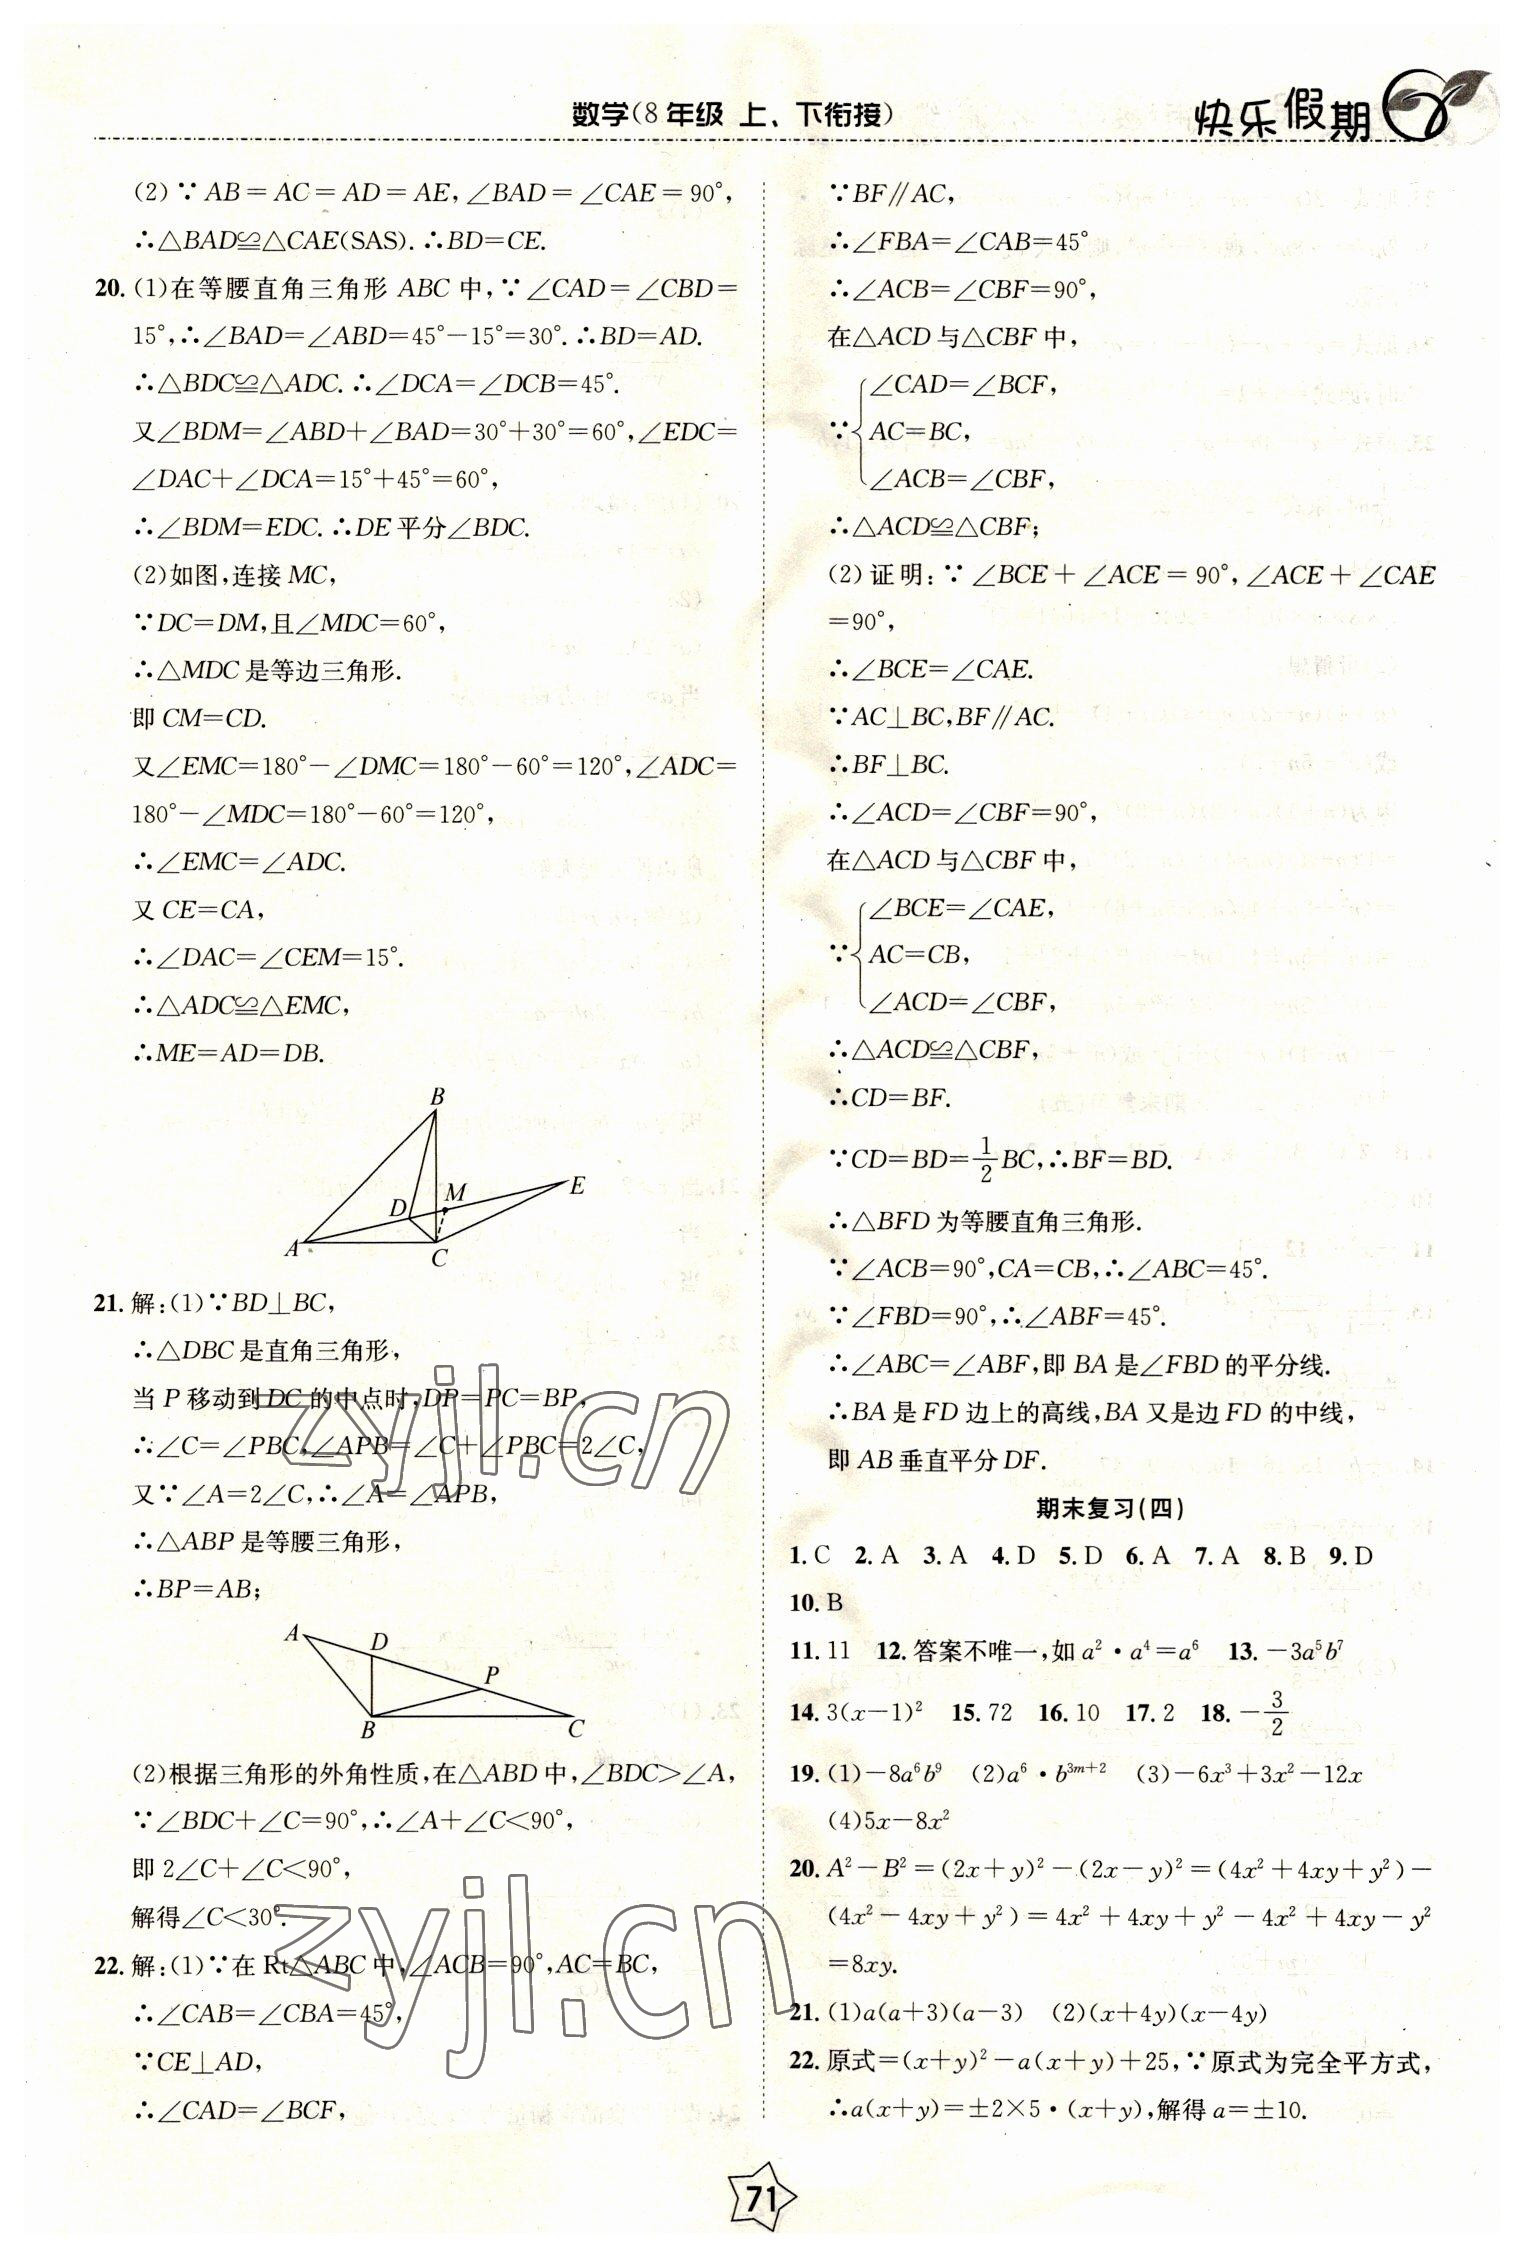 数学(8年级 上、下衔接)
快乐假期
(2)∵AB=AC=AD=AE,∠BAD=∠CAE=90°,
∴△BAD≌△CAE(SAS).∴BD=CE.
20.(1)在等腰直角三角形ABC中,∵∠CAD=∠CBD=
15°,∴∠BAD=∠ABD=45°-15°=30°.∴BD=AD.
∴△BDC≌△ADC.∴∠DCA=∠DCB=45°.
又∠BDM=∠ABD+∠BAD=30°+30°=60°,∠EDC=
∠DAC+∠DCA=15°+45°=60°,
∴∠BDM=EDC.∴DE平分∠BDC.
(2)如图,连接MC,
∵DC=DM,且∠MDC=60°,
∴△MDC是等边三角形.
即CM=CD.
又∠EMC=180°-∠DMC=180°-60°=120°,∠ADC=
180°-∠MDC=180°-60°=120°,
∴∠EMC=∠ADC.
又CE=CA,
∴∠DAC=∠CEM=15°.
∴△ADC≌△EMC,
∴ME=AD=DB.
B
M
E
D
A
C
21.解:(1)∵BD⊥BC,
∴△DBC是直角三角形,
当P移动到DC的中点时,DP=PC=BP,
∴∠C=∠PBC,∠APB=∠C+∠PBC=2∠C,
又∵∠A=2∠C,∴∠A=∠APB,
∴△ABP是等腰三角形,
∴BP=AB;
A
D
P
B
C
(2)根据三角形的外角性质,在△ABD中,∠BDC>∠A,
∵∠BDC+∠C=90°,∴∠A+∠C<90°,
即2∠C+∠C<90°,
解得∠C<30°.
22.解:(1)∵在Rt△ABC中,∠ACB=90°,AC=BC,
∴∠CAB=∠CBA=45°,
∵CE⊥AD,
∴∠CAD=∠BCF,
∵BF∥AC,
∴∠FBA=∠CAB=45°
∴∠ACB=∠CBF=90°,
在△ACD与△CBF中,
∠CAD=∠BCF,
∵ AC=BC,
∠ACB=∠CBF,
∴△ACD≌△CBF;
(2)证明:∵∠BCE+∠ACE=90°,∠ACE+∠CAE
=90°,
∴∠BCE=∠CAE.
∵AC⊥BC,BF∥AC.
∴BF⊥BC.
∴∠ACD=∠CBF=90°,
在△ACD与△CBF中,
∠BCE=∠CAE,
∵ AC=CB,
∠ACD=∠CBF,
∴△ACD≌△CBF,
∴CD=BF.
∵CD=BD=1/2BC,∴BF=BD.
∴△BFD为等腰直角三角形.
∵∠ACB=90°,CA=CB,∴∠ABC=45°.
∵∠FBD=90°,∴∠ABF=45°.
∴∠ABC=∠ABF,即BA是∠FBD的平分线.
∴BA是FD边上的高线,BA又是边FD的中线,
即AB垂直平分DF.
期末复习(四)
1.C 2.A 3.A 4.D 5.D 6.A 7.A 8.B 9.D
10.B
11.11 12.答案不唯一,如a²·a⁴=a⁶ 13.-3a⁵b⁷
14.3(x-1)² 15.72 16.10 17.2 18.-3/2
19.(1)-8a⁶b⁹ (2)a⁶·b³ᵐ⁺² (3)-6x³+3x²-12x
(4)5x-8x²
20.A²-B²=(2x+y)²-(2x-y)²=(4x²+4xy+y²)-
(4x²-4xy+y²)=4x²+4xy+y²-4x²+4xy-y²
=8xy.
21.(1)a(a+3)(a-3) (2)(x+4y)(x-4y)
22.原式=(x+y)²-a(x+y)+25,∵原式为完全平方式,
∴a(x+y)=±2×5·(x+y),解得a=±10.
71
zyjl.cn
zyjl.cn